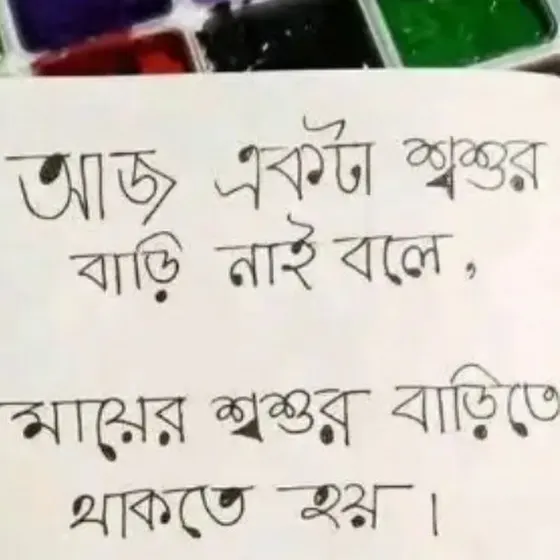 আজ একটা শ্বশুর
বাড়ি নাই বলে,
মায়ের শ্বশুর বাড়িতে
থাকতে হয়।